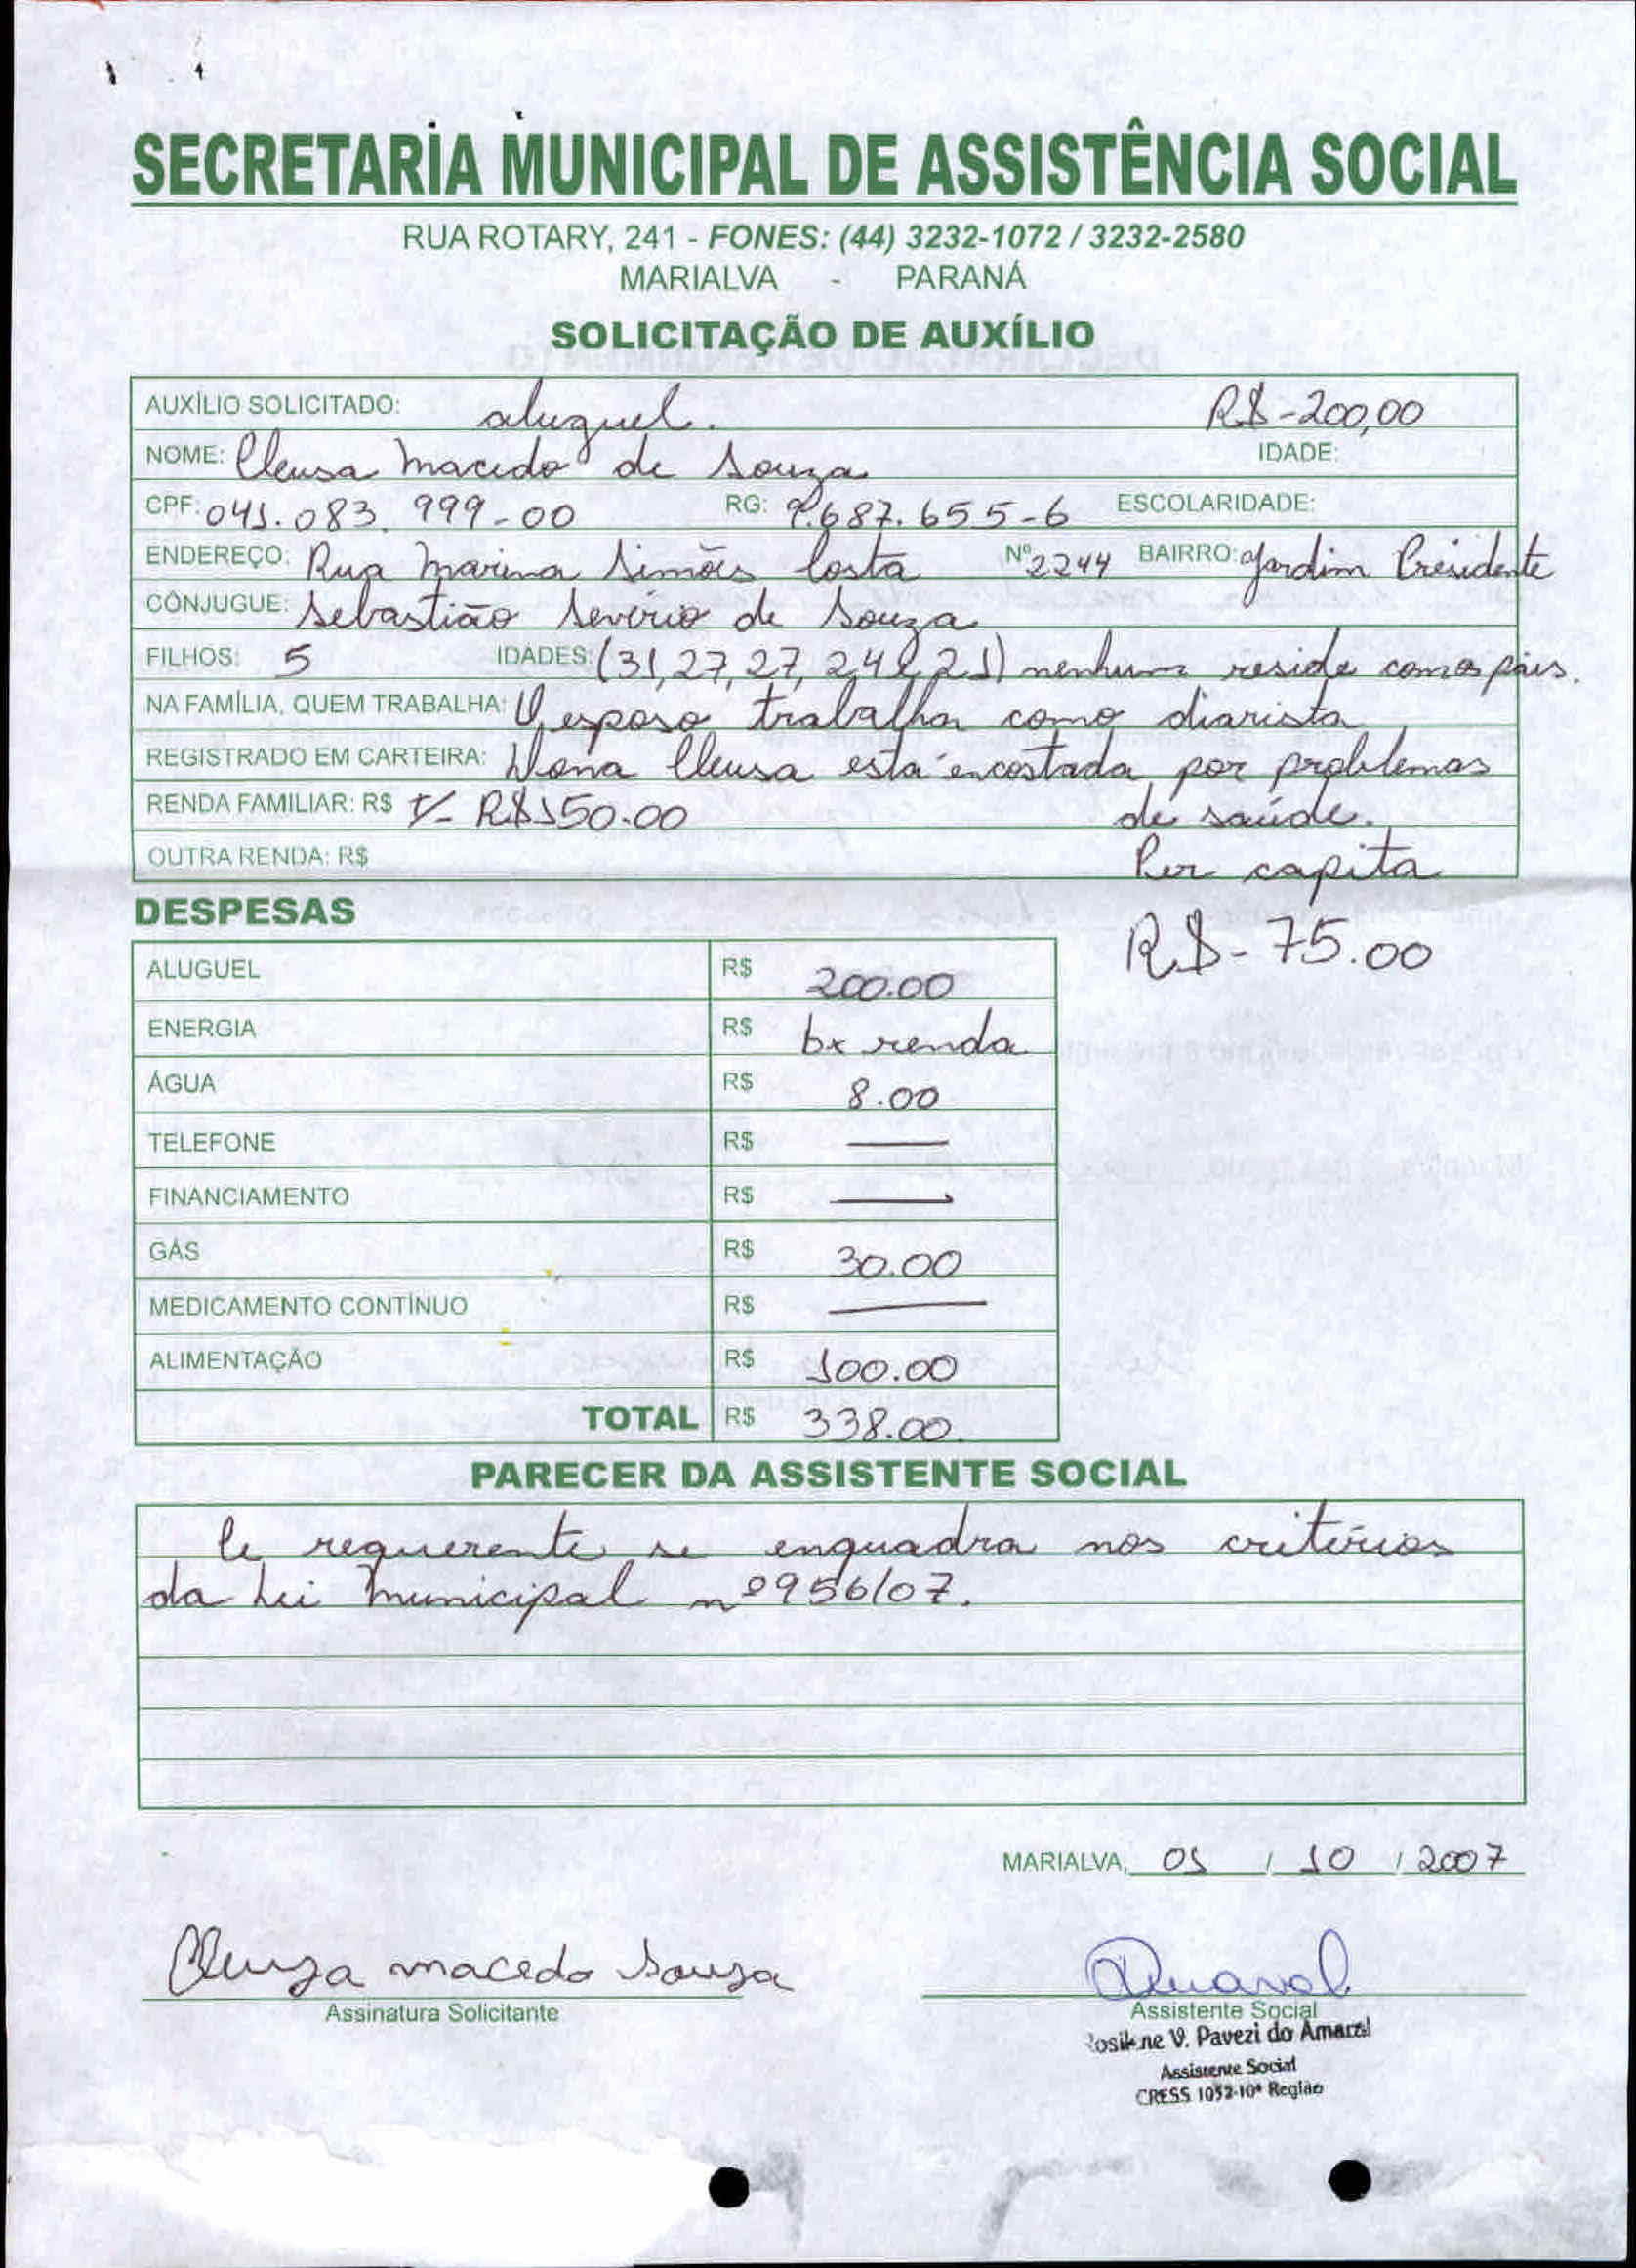 SECRETARIA MUNICIPAL DE ASSISTÊNCIA SOCIAL
RUA ROTARY, 241 - FONES: (44) 3232-1072 / 3232-2580
MARIALVA - PARANÁ
SOLICITAÇÃO DE AUXÍLIO
AUXÍLIO SOLICITADO: aluguel. R$-200,00
NOME: Cleusa Macedo de Souza IDADE:
CPF: 041.083.999-00 RG: 9.687.655-6 ESCOLARIDADE:
ENDEREÇO: Rua Marina Simões Costa Nº 2244 BAIRRO: Jardim Presidente
CÔNJUGUE: Sebastião Severio de Souza
FILHOS: 5 IDADES: (31,27,27,24 e 21) nenhum reside com os pais.
NA FAMÍLIA, QUEM TRABALHA: O esposo trabalha como diarista
REGISTRADO EM CARTEIRA: Dona Cleusa está encostada por problemas
RENDA FAMILIAR: R$ +/- R$150.00 de saúde.
OUTRA RENDA: R$ Per capita
DESPESAS R$-75.00
ALUGUEL R$ 200.00
ENERGIA R$ bx renda
ÁGUA R$ 8.00
TELEFONE R$ —
FINANCIAMENTO R$ —
GÁS R$ 30.00
MEDICAMENTO CONTÍNUO R$ —
ALIMENTAÇÃO R$ 100.00
TOTAL R$ 338.00
PARECER DA ASSISTENTE SOCIAL
requerente se enquadra nos critérios
da Lei Municipal nº 956/07.
MARIALVA, 01 / 10 / 2007
Cleuza macedo Souza
Assinatura Solicitante
Assistente Social
Rosilene V. Pavezi do Amaral
Assistente Social
CRESS 1032-10ª Região